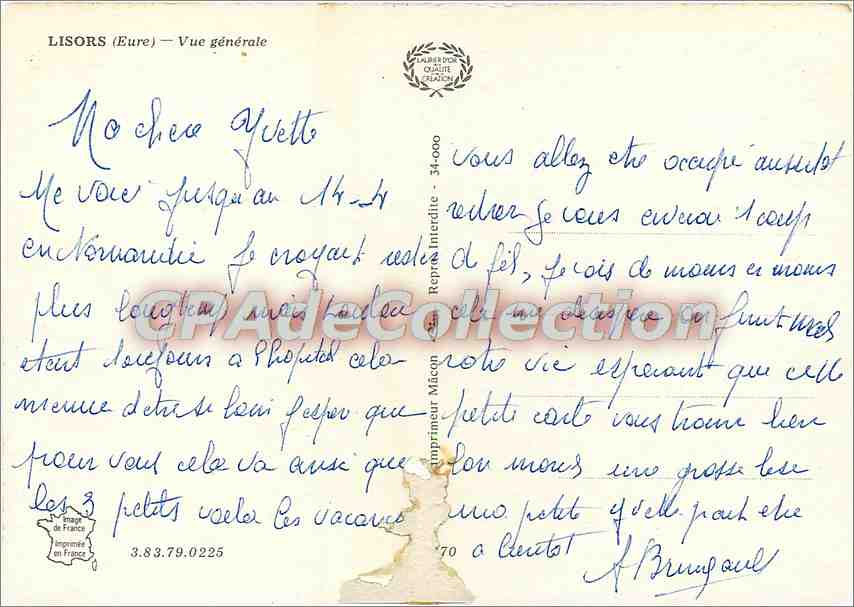 LISORS (Eure) — Vue générale
LAURIER D'OR
DE LA
QUALITÉ
DE LA
CRÉATION
Ma chere Yvette
Me voici jusqu'au 14-4
en Normandie je croyait rester
plus longtemps mais
etant toujours a l'hopital cela
m'ennuie d'etre si loin j'espere que
pour vous cela va ainsi que
les 3 petits voila les vacances
Imprimeur Mâcon Repro. Interdite - 34-000
vous allez etre occupé aussitot
rentrer je vous envoie 1 coup
de fil, je vois de moins en moins
cela me desespere enfin
notre vie esperant que cette
petite carte vous trouve bien
mond une grosse bise
ma petite Yvette peut etre
a bientot
CPAdeCollection
Image
de France
Imprimée
en France
3.83.79.0225
70